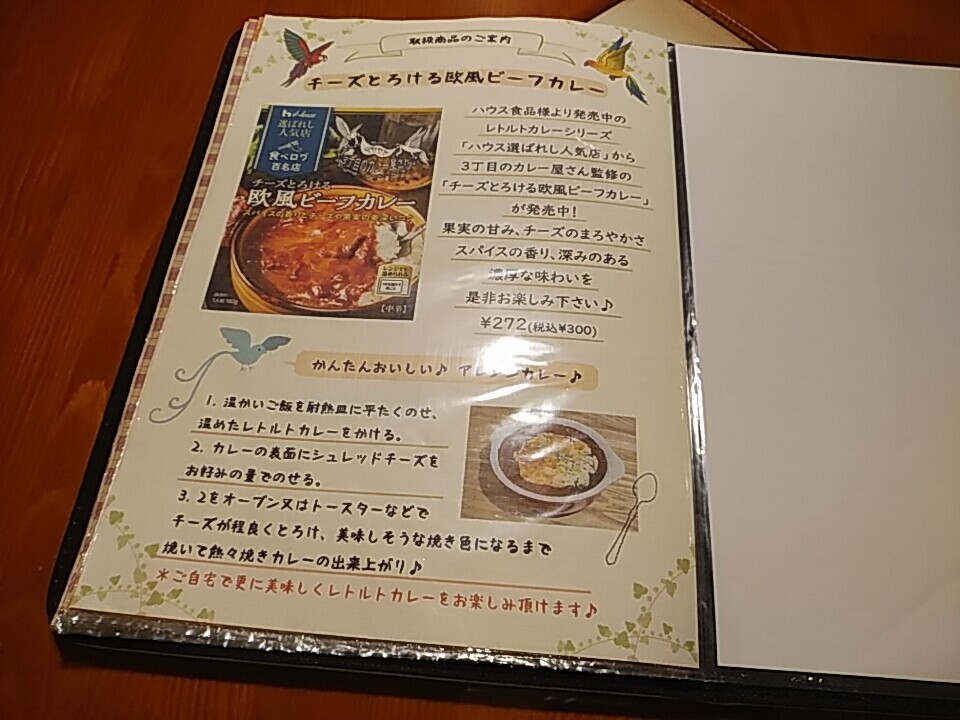 取扱商品のご案内
チーズとろける欧風ビーフカレー
House
選ばれし
人気店
食べログ
百名店
チーズとろける
欧風ビーフカレー
スパイスの香りとチーズや果実の
【中辛】
ハウス食品様より発売中の
レトルトカレーシリーズ
「ハウス選ばれし人気店」から
3丁目のカレー屋さん監修の
「チーズとろける欧風ビーフカレー」
が発売中！
果実の甘み、チーズのまろやかさ
スパイスの香り、深みのある
濃厚な味わいを
是非お楽しみ下さい♪
¥272(税込¥300)
かんたんおいしい♪ アレンジカレー♪
1. 温かいご飯を耐熱皿に平たくのせ、
温めたレトルトカレーをかける。
2. カレーの表面にシュレッドチーズを
お好みの量でのせる。
3. 2をオーブン又はトースターなどで
チーズが程良くとろけ、美味しそうな焼き色になるまで
焼いて熱々焼きカレーの出来上がり♪
＊ご自宅で更に美味しくレトルトカレーをお楽しみ頂けます♪